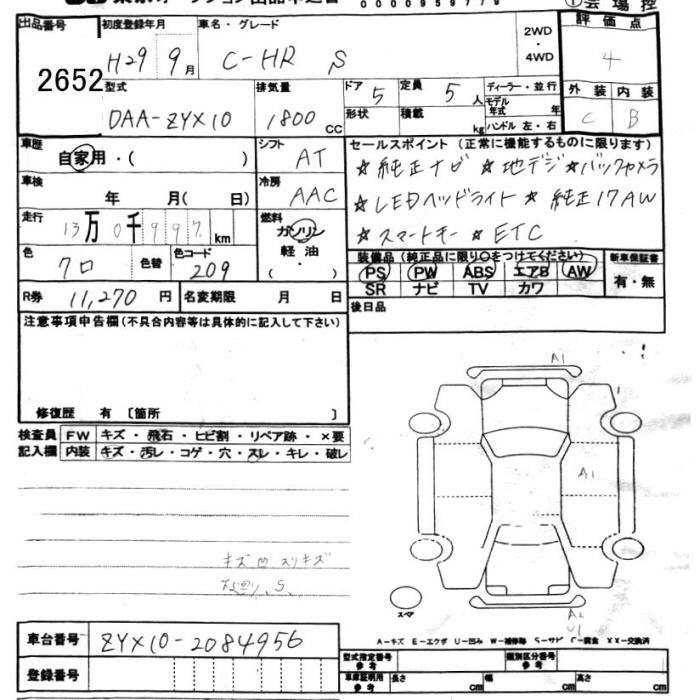 0000959779
①会場控
出品番号 2652
初度登録年月 H29 9月
車名・グレード C-HR S
2WD・4WD
評価点 4
型式 DAA-ZYX10
排気量 1800 CC
ドア 5 形状
定員 5人 積載 kg
ディーラー・並行
モデル年式 年
ハンドル 左・右
外装 C 内装 B
車歴 自家用・( )
シフト AT
セールスポイント(正常に機能するものに限ります)
☆純正ナビ ☆地デジ ☆バックカメラ
☆LEDヘッドライト ☆純正17AW
☆スマートキー ☆ETC
車検 年 月( 日)
冷房 AAC
走行 13万0千997 km
燃料 ガソリン 軽油 (・)
色 クロ 色替 色コード 209
装備品(純正品に限り〇をつけてください)
新車保証書
PS PW ABS エアB AW
SR ナビ TV カワ
有・無
R券 11,270円 名変期限 月 日
後日品
注意事項申告欄(不具合内容等は具体的に記入して下さい)
修復歴 有 〔箇所 〕
検査員記入欄
FW キズ・飛石・ヒビ割・リペア跡・×要
内装 キズ・汚レ・コゲ・穴・スレ・キレ・破レ
A1
A1
キズ凹スリキズ
スペア
A2
A-キズ E-エクボ U-凹み W-補修跡 S-サビ C-腐食 XX-交換済
車台番号 ZYX10-2084956
登録番号
型式指定番号 参考
類別区分番号 参考
車庫証明用 参考 長さ cm 幅 cm 高さ cm